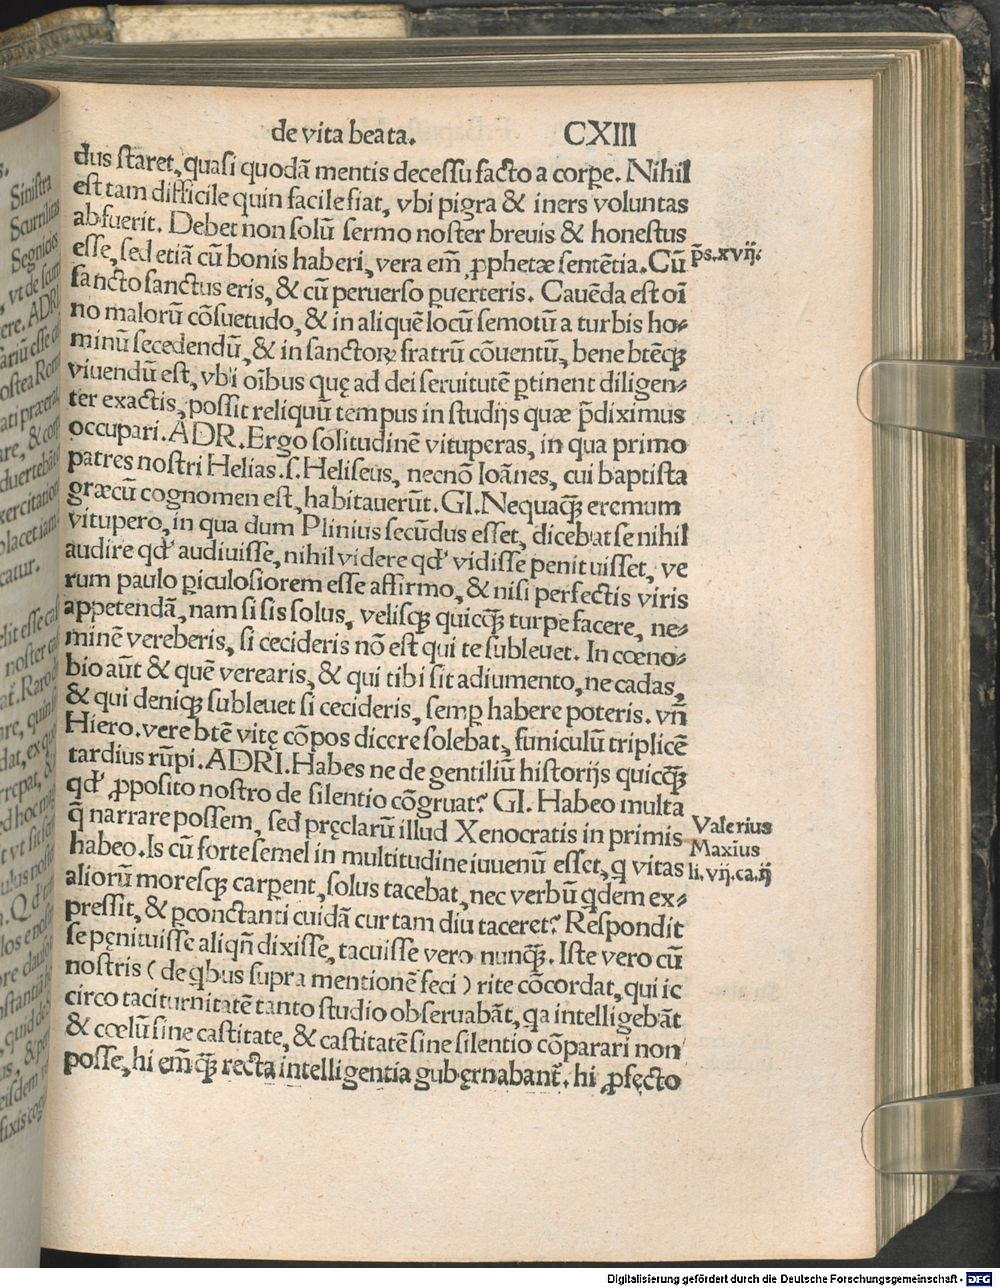 de vita beata. CXIII
dus staret, quasi quodā mentis decessu facto a corꝑe. Nihil
est tam difficile quin facile fiat, vbi pigra & iners voluntas
abfuerit. Debet non solū sermo noster breuis & honestus
esse, sed etiā cū bonis haberi, vera em̄ ꝓphetæ sentētia. Cū
p̄s. xvij.
sancto sanctus eris, & cū peruerso ꝑuerteris. Cauēda est oī
no malorū cōsuetudo, & in aliquē locū semotū a turbis ho⸗
minū secedendū, & in sanctoꝝ fratrū cōuentū, bene btēqꝫ
viuendū est, vbi oībus quę ad dei seruitutē ꝑtinent diligen⸗
ter exactis, possit reliquū tempus in studijs quæ p̄diximus
occupari. ADR. Ergo solitudinē vituperas, in qua primo
patres nostri Helias .s. Heliseus, necnō Ioānes, cui baptista
græcū cognomen est, habitauerūt. GI. Nequaqꝫ̄ eremum
vitupero, in qua dum Plinius secūdus esset, dicebat se nihil
audire qđ audiuisse, nihil videre qđ vidisse penituisset, ve
rum paulo ꝑiculosiorem esse affirmo, & nisi perfectis viris
appetendā, nam si sis solus, velisqꝫ quicqꝫ̄ turpe facere, ne⸗
minē vereberis, si cecideris nō est qui te subleuet. In cœno⸗
bio aūt & quē verearis, & qui tibi sit adiumento, ne cadas,
& qui deniqꝫ subleuet si cecideris, semꝑ habere poteris. vn̄
Hiero. vere btē vitę cōpos dicere solebat, funiculū triplicē
tardius rūpi. ADRI. Habes ne de gentiliū historijs quicqꝫ̄
qđ ꝓposito nostro de silentio cōgruat? GI. Habeo multa
q̄ narrare possem, sed pręclarū illud Xenocratis in primis
Valerius
Maxius
li. vij. ca. ij
habeo. Is cū forte semel in multitudine iuuenū esset, q vitas
aliorū moresqꝫ carꝑent, solus tacebat, nec verbū qdem ex⸗
pressit, & ꝑconctanti cuidā cur tam diu taceret? Respondit
se pęnituisse aliqn̄ dixisse, tacuisse vero nunqꝫ̄. Iste vero cū
nostris (de qbus supra mentionē feci) rite cōcordat, qui ic
circo taciturnitatē tanto studio obseruabāt, qa intelligebāt
& cœlū sine castitate, & castitatē sine silentio cōparari non
posse, hi em̄qꝫ̄ recta intelligentia gubęrnabant̄. hi ꝓfęcto
Digitalisierung gefördert durch die Deutsche Forschungsgemeinschaft - DFG